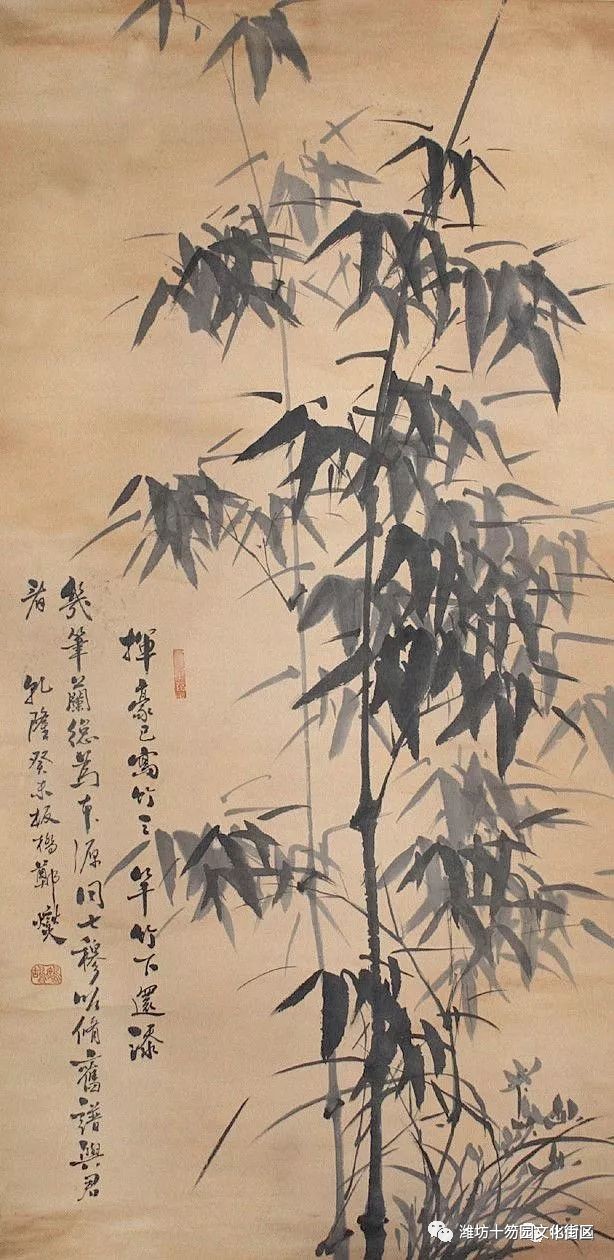 揮豪已寫竹三竿竹下還添
幾筆蘭總為本源同七穆欲脩舊譜與君
看 乾隆癸未板橋鄭燮
潍坊十笏园文化街区